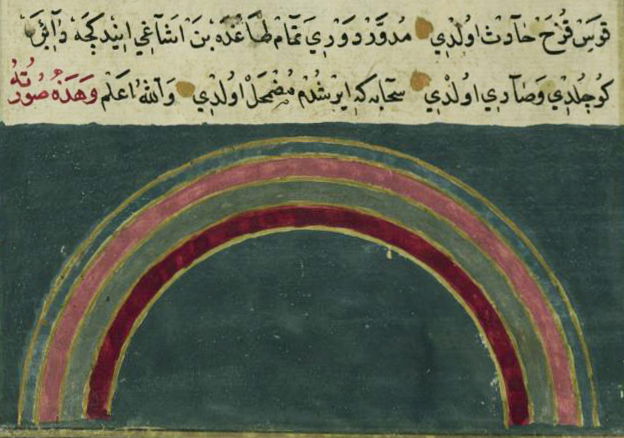 قوس قزح حادث اولدي مدوردر دوري تمام طاغده بن اشاغي ايندكجه دآئره
كوچلدي وصآري اولدي سحابه كه ايرشدم مضمحل اولدي والله اعلم وهذه صورته